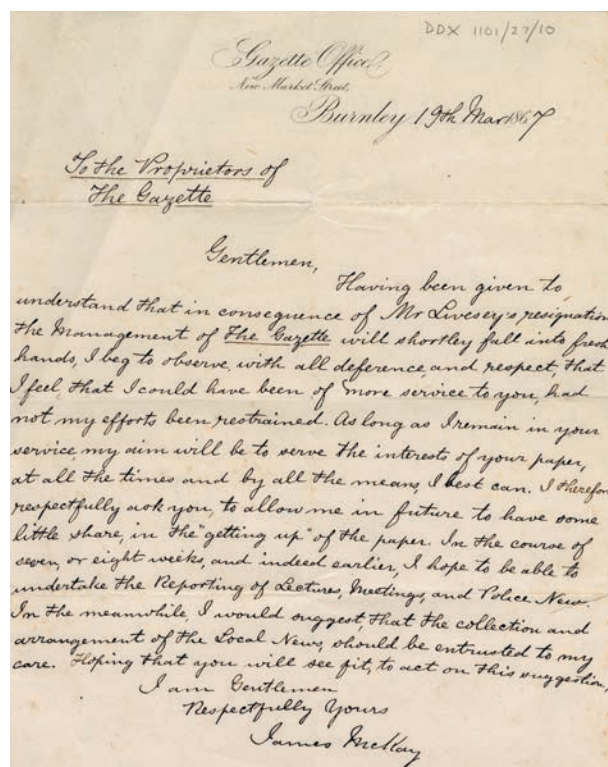 DDX 1101/27/10
Gazette Office,
New Market Street,
Burnley 19th Mar 1867
To the Proprietors of
The Gazette
Gentlemen,
Having been given to
understand that in consequence of Mr Livesey's resignation
the Management of The Gazette will shortley fall into fresh
hands, I beg to observe, with all deference and respect, that
I feel, that I could have been of more service to you, had
not my efforts been restrained. As long as I remain in your
service, my aim will be to serve the interests of your paper,
at all the times and by all the means, I best can. I therefore
respectfully ask you, to allow me in future to have some
little share, in the "getting up" of the paper. In the course of
seven, or eight weeks, and indeed earlier, I hope to be able to
undertake the Reporting of Lectures, Meetings, and Police News.
In the meanwhile, I would suggest, that the collection and
arrangement of the Local News, should be entrusted to my
care. Hoping that you will see fit, to act on this suggestion,
I am Gentlemen
Respectfully Yours
James McKay